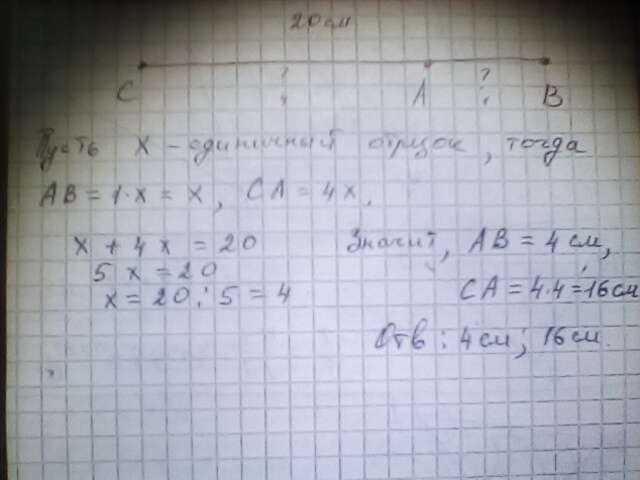 20 см
? ?
C A B
Пусть x - единичный отрезок, тогда
AB = 1·x = x, CA = 4x.
x + 4x = 20
5x = 20
x = 20 : 5 = 4
Значит, AB = 4 см,
CA = 4·4 = 16 см
Отв: 4 см; 16 см.